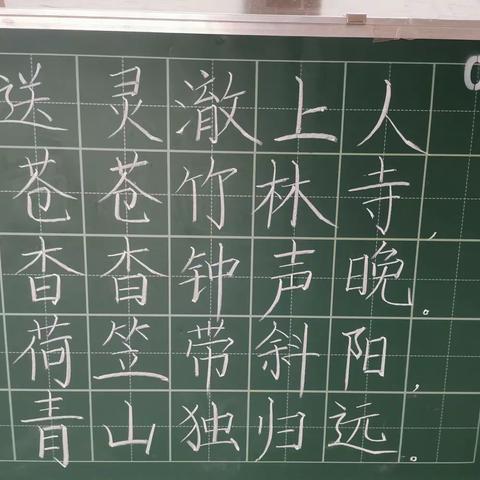 送灵澈上人
苍苍竹林寺，
杳杳钟声晚。
荷笠带斜阳，
青山独归远。